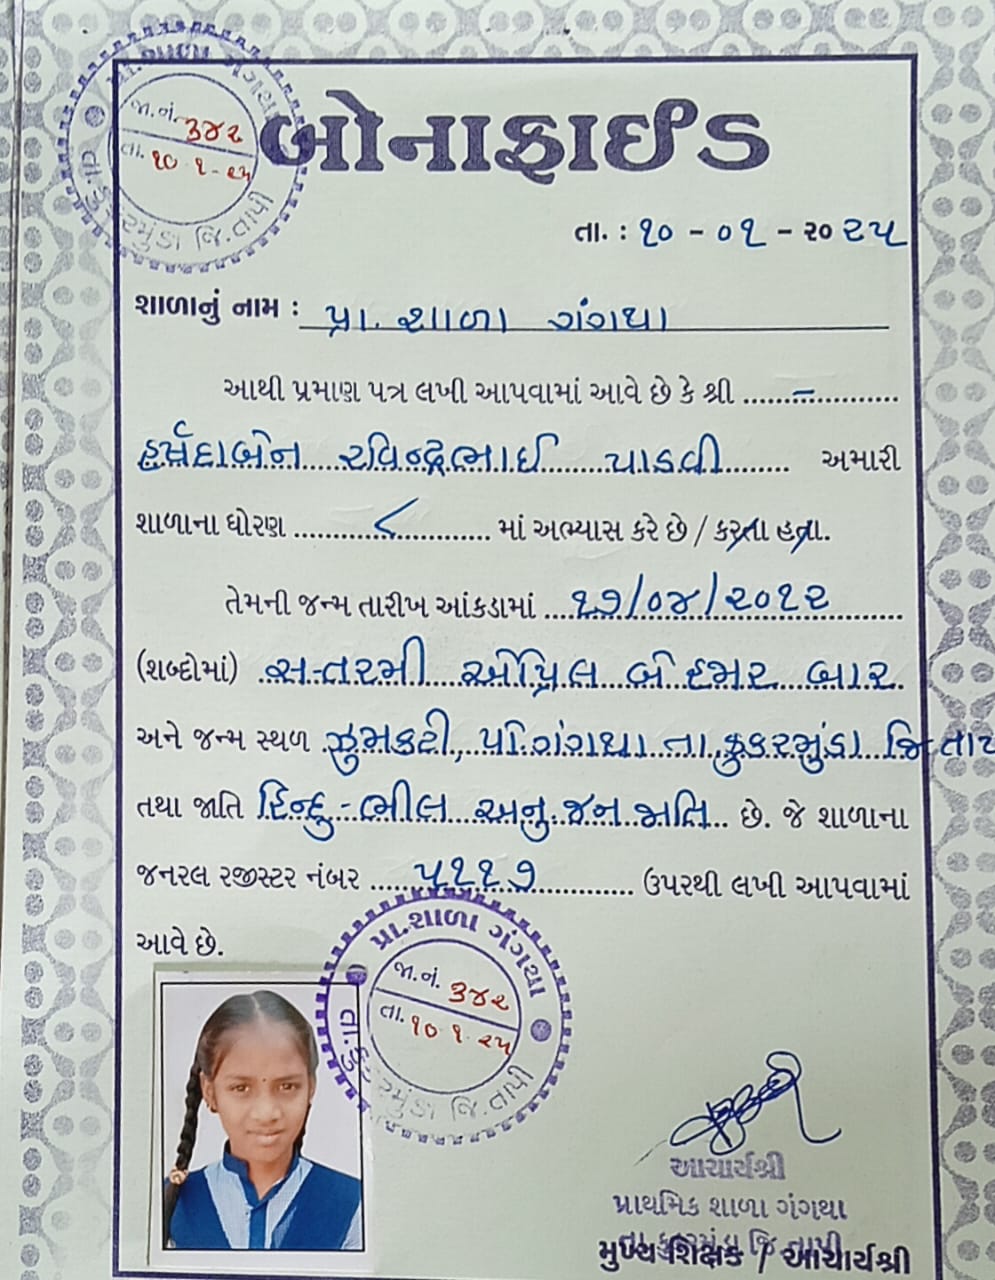 પ્રા.શાળા ગંગથા
જા.નં. ૩૪૨
તા. ૧૦.૧.૨૫
તા.કુકરમુંડા જિ.તાપી
બોનાફાઈડ
તા. : ૧૦ - ૦૧ - ૨૦૨૫
શાળાનું નામ : પ્રા. શાળા ગંગથા
આથી પ્રમાણ પત્ર લખી આપવામાં આવે છે કે શ્રી ......–..........
હર્ષદાબેન રવિન્દ્રભાઈ પાડવી અમારી
શાળાના ધોરણ ........૮......... માં અભ્યાસ કરે છે / કરતા હતા.
તેમની જન્મ તારીખ આંકડામાં ૧૭/૦૪/૨૦૧૨
(શબ્દોમાં) સત્તરમી એપ્રિલ બે હજાર બાર
અને જન્મ સ્થળ ઝુમકટી, પો.ગંગથા તા.કુકરમુંડા જિ તાપ
તથા જાતિ હિન્દુ-ભીલ અનુ.જન જાતિ છે. જે શાળાના
જનરલ રજીસ્ટર નંબર ....૫૧૧૭......... ઉપરથી લખી આપવામાં
આવે છે.
પ્રા.શાળા ગંગથા
જા.નં. ૩૪૨
તા. ૧૦.૧.૨૫
તા.કુકરમુંડા જિ.તાપી
આચાર્યશ્રી
પ્રાથમિક શાળા ગંગથા
તા કુકરમુંડા જિ.તાપી
મુખ્ય શિક્ષક / આચાર્યશ્રી